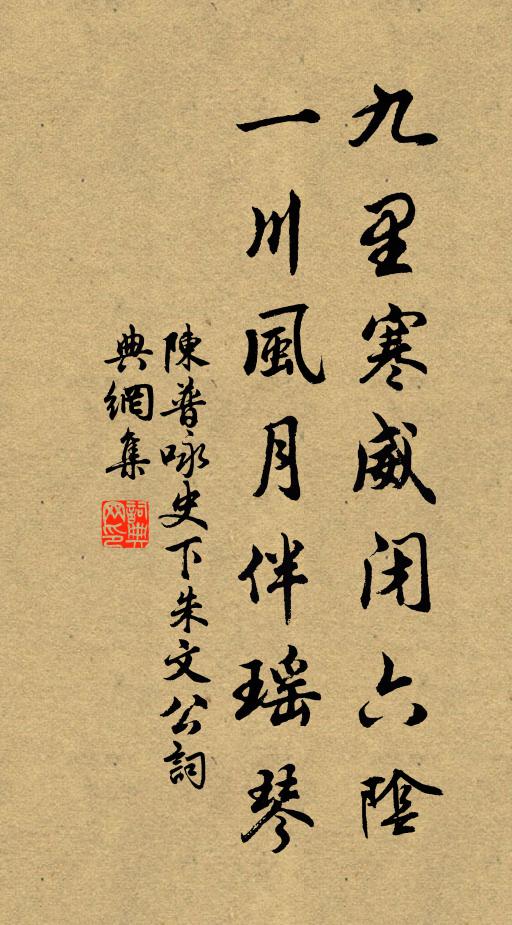 九里寒威閉六陰
一川風月伴瑶琴
陳普咏史下朱文公詞
典網集
詞典網印